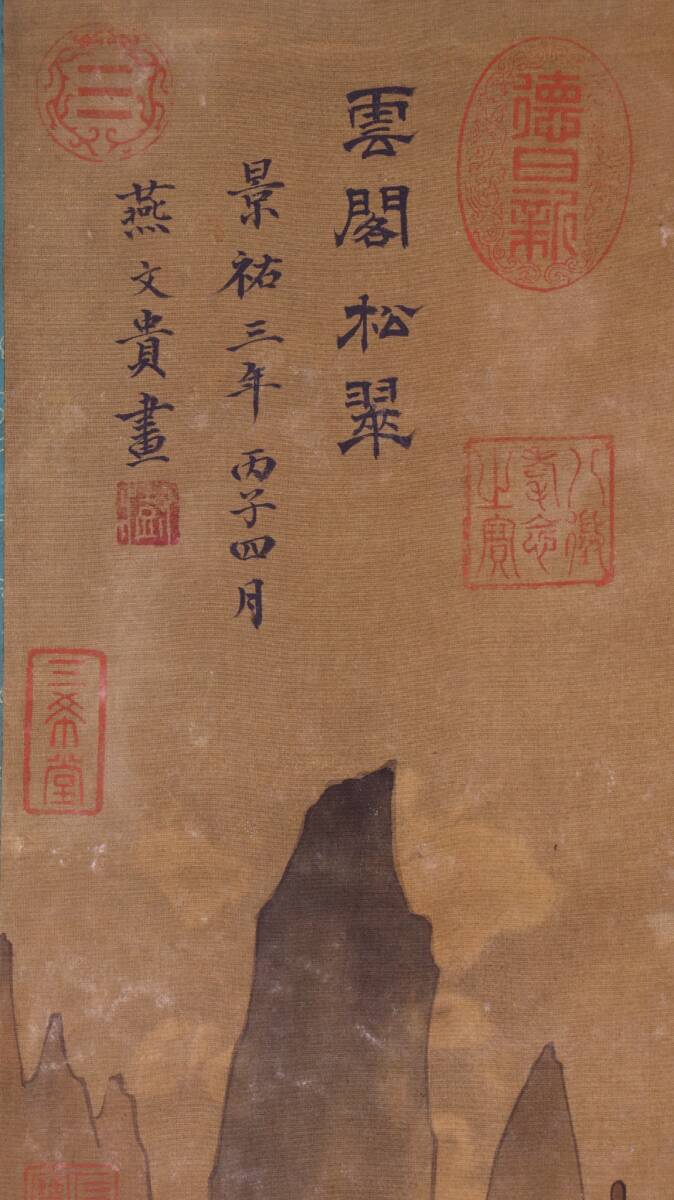 德日新
八徵耄念之寶
雲閣松翠
景祐三年丙子四月
燕文貴畫
三希堂